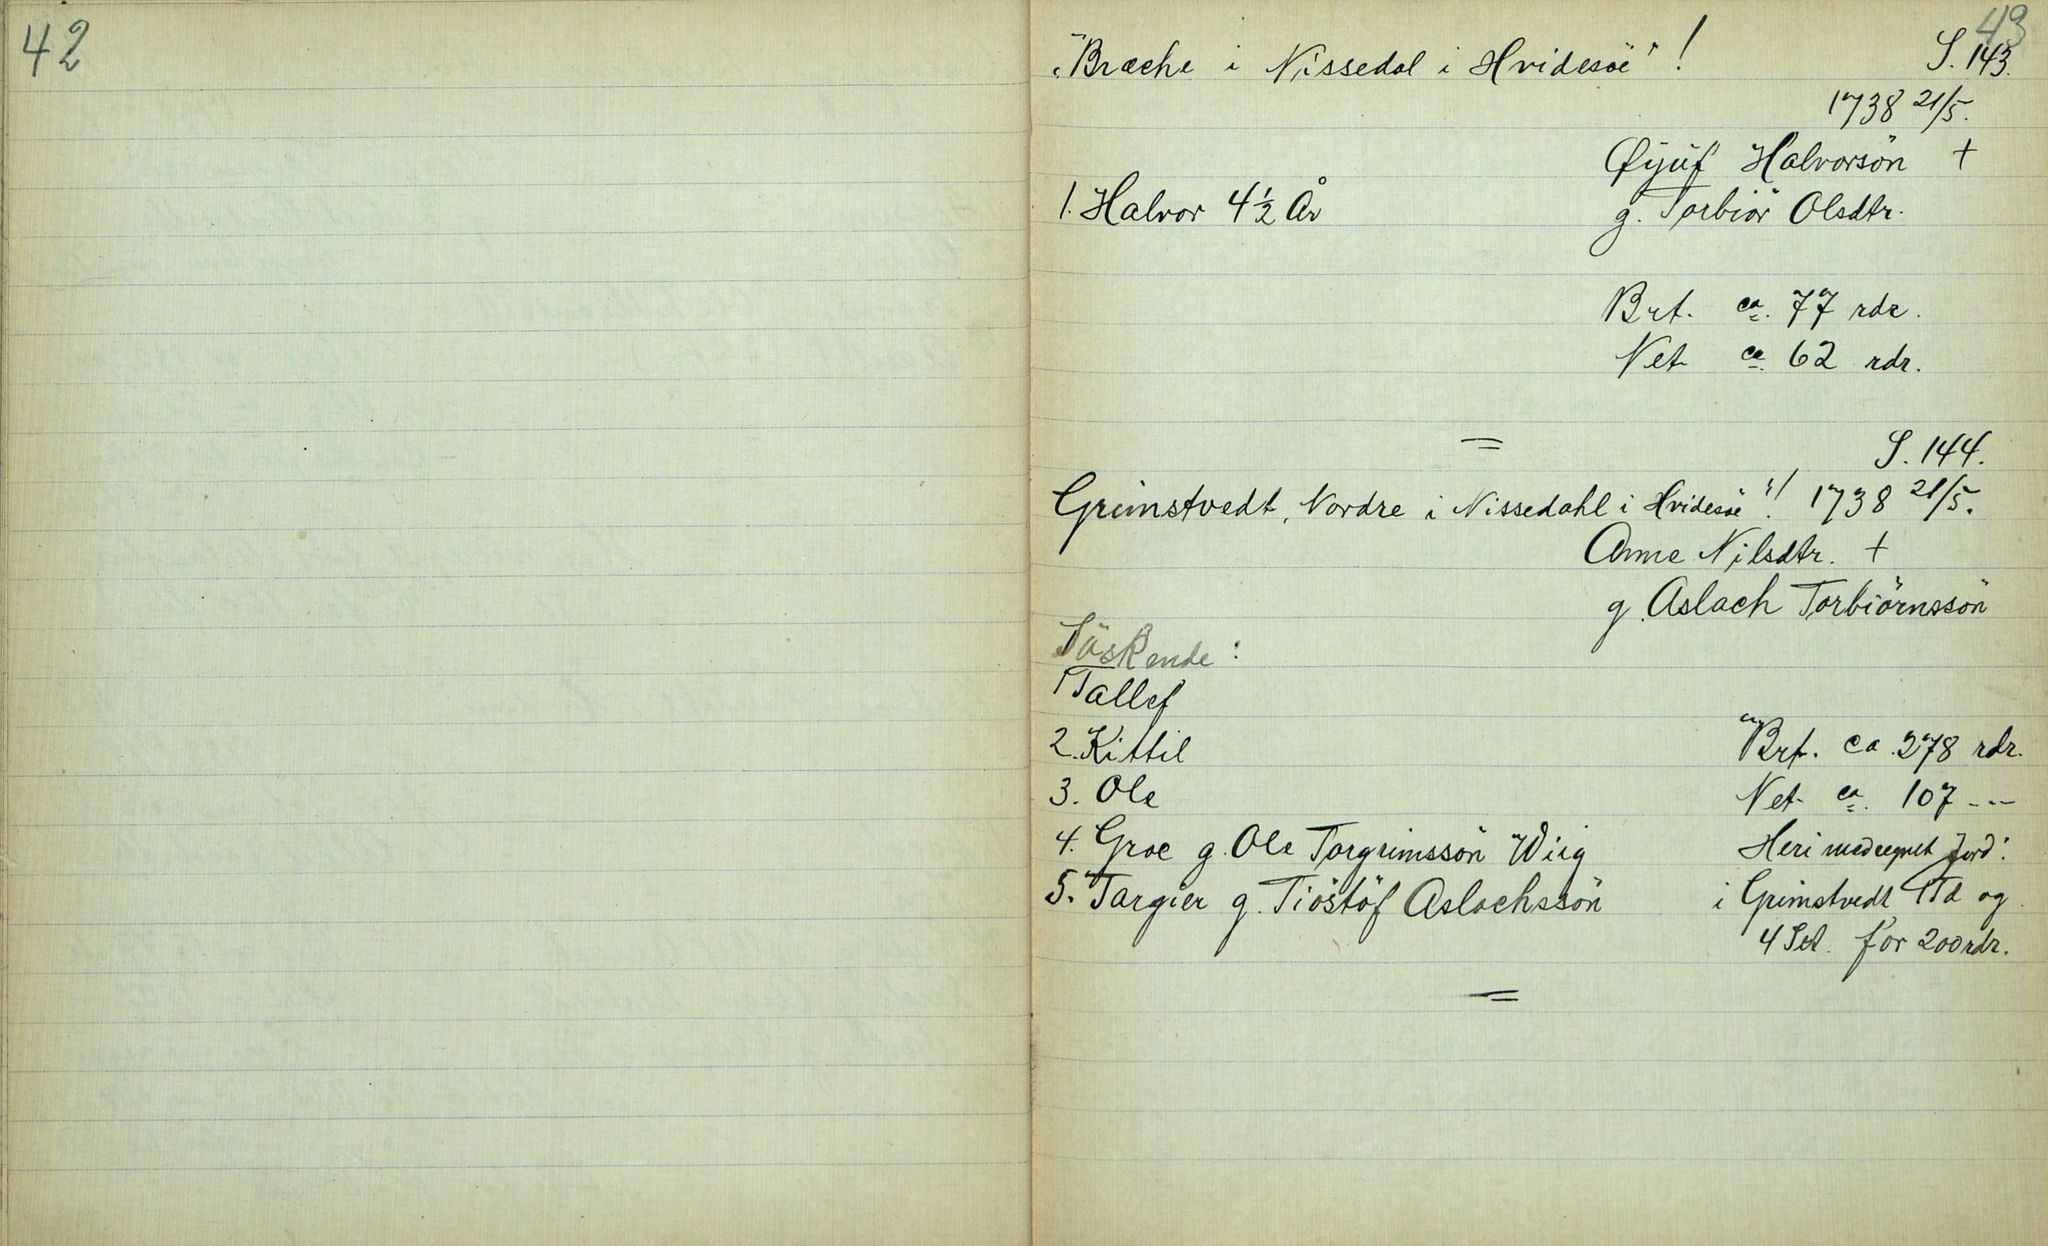 42
43
"Bræche i Nissedal i Hvidesöe"! S. 143.
1738 21/5.
Øyüf Halvorsön +
1. Halvor 4½ År g. Torbiör Olsdtr.
Brt. ca. 77 rdr.
Net ca. 62 rdr.
=
S. 144.
Grimstvedt, Nordre i Nissedahl i Hvidesöe"! 1738 21/5.
Anne Nilsdtr. +
g. Aslach Torbiörnssön
Söskende:
1 Tallef
2. Kittil Brt. ca. 278 rdr.
3. Ole Net ca. 107 ---
4. Groe g. Ole Torgrimssön Wiig Heri medregnet Jord:
5. Targier g. Tiöstöf Aslachssön i Grimstvedt 1 Td og
4 Set. for 200 rdr.
=